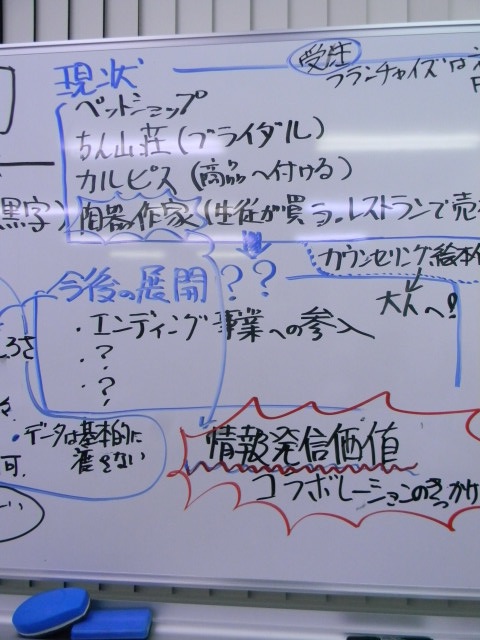 受注
現状
フランチャイズは
ペットショップ
ちん山荘(ブライダル)
カルピス(商品へ付ける)
黒字)陶器作家(生徒が買う。レストランで売
??
カウンセリング絵本
今後の展開
大人へ!
・エンディング事業への参入
・?
・?
・データは基本的に
渡さない
可.
情報発信価値
コラボレーションのきっかけ